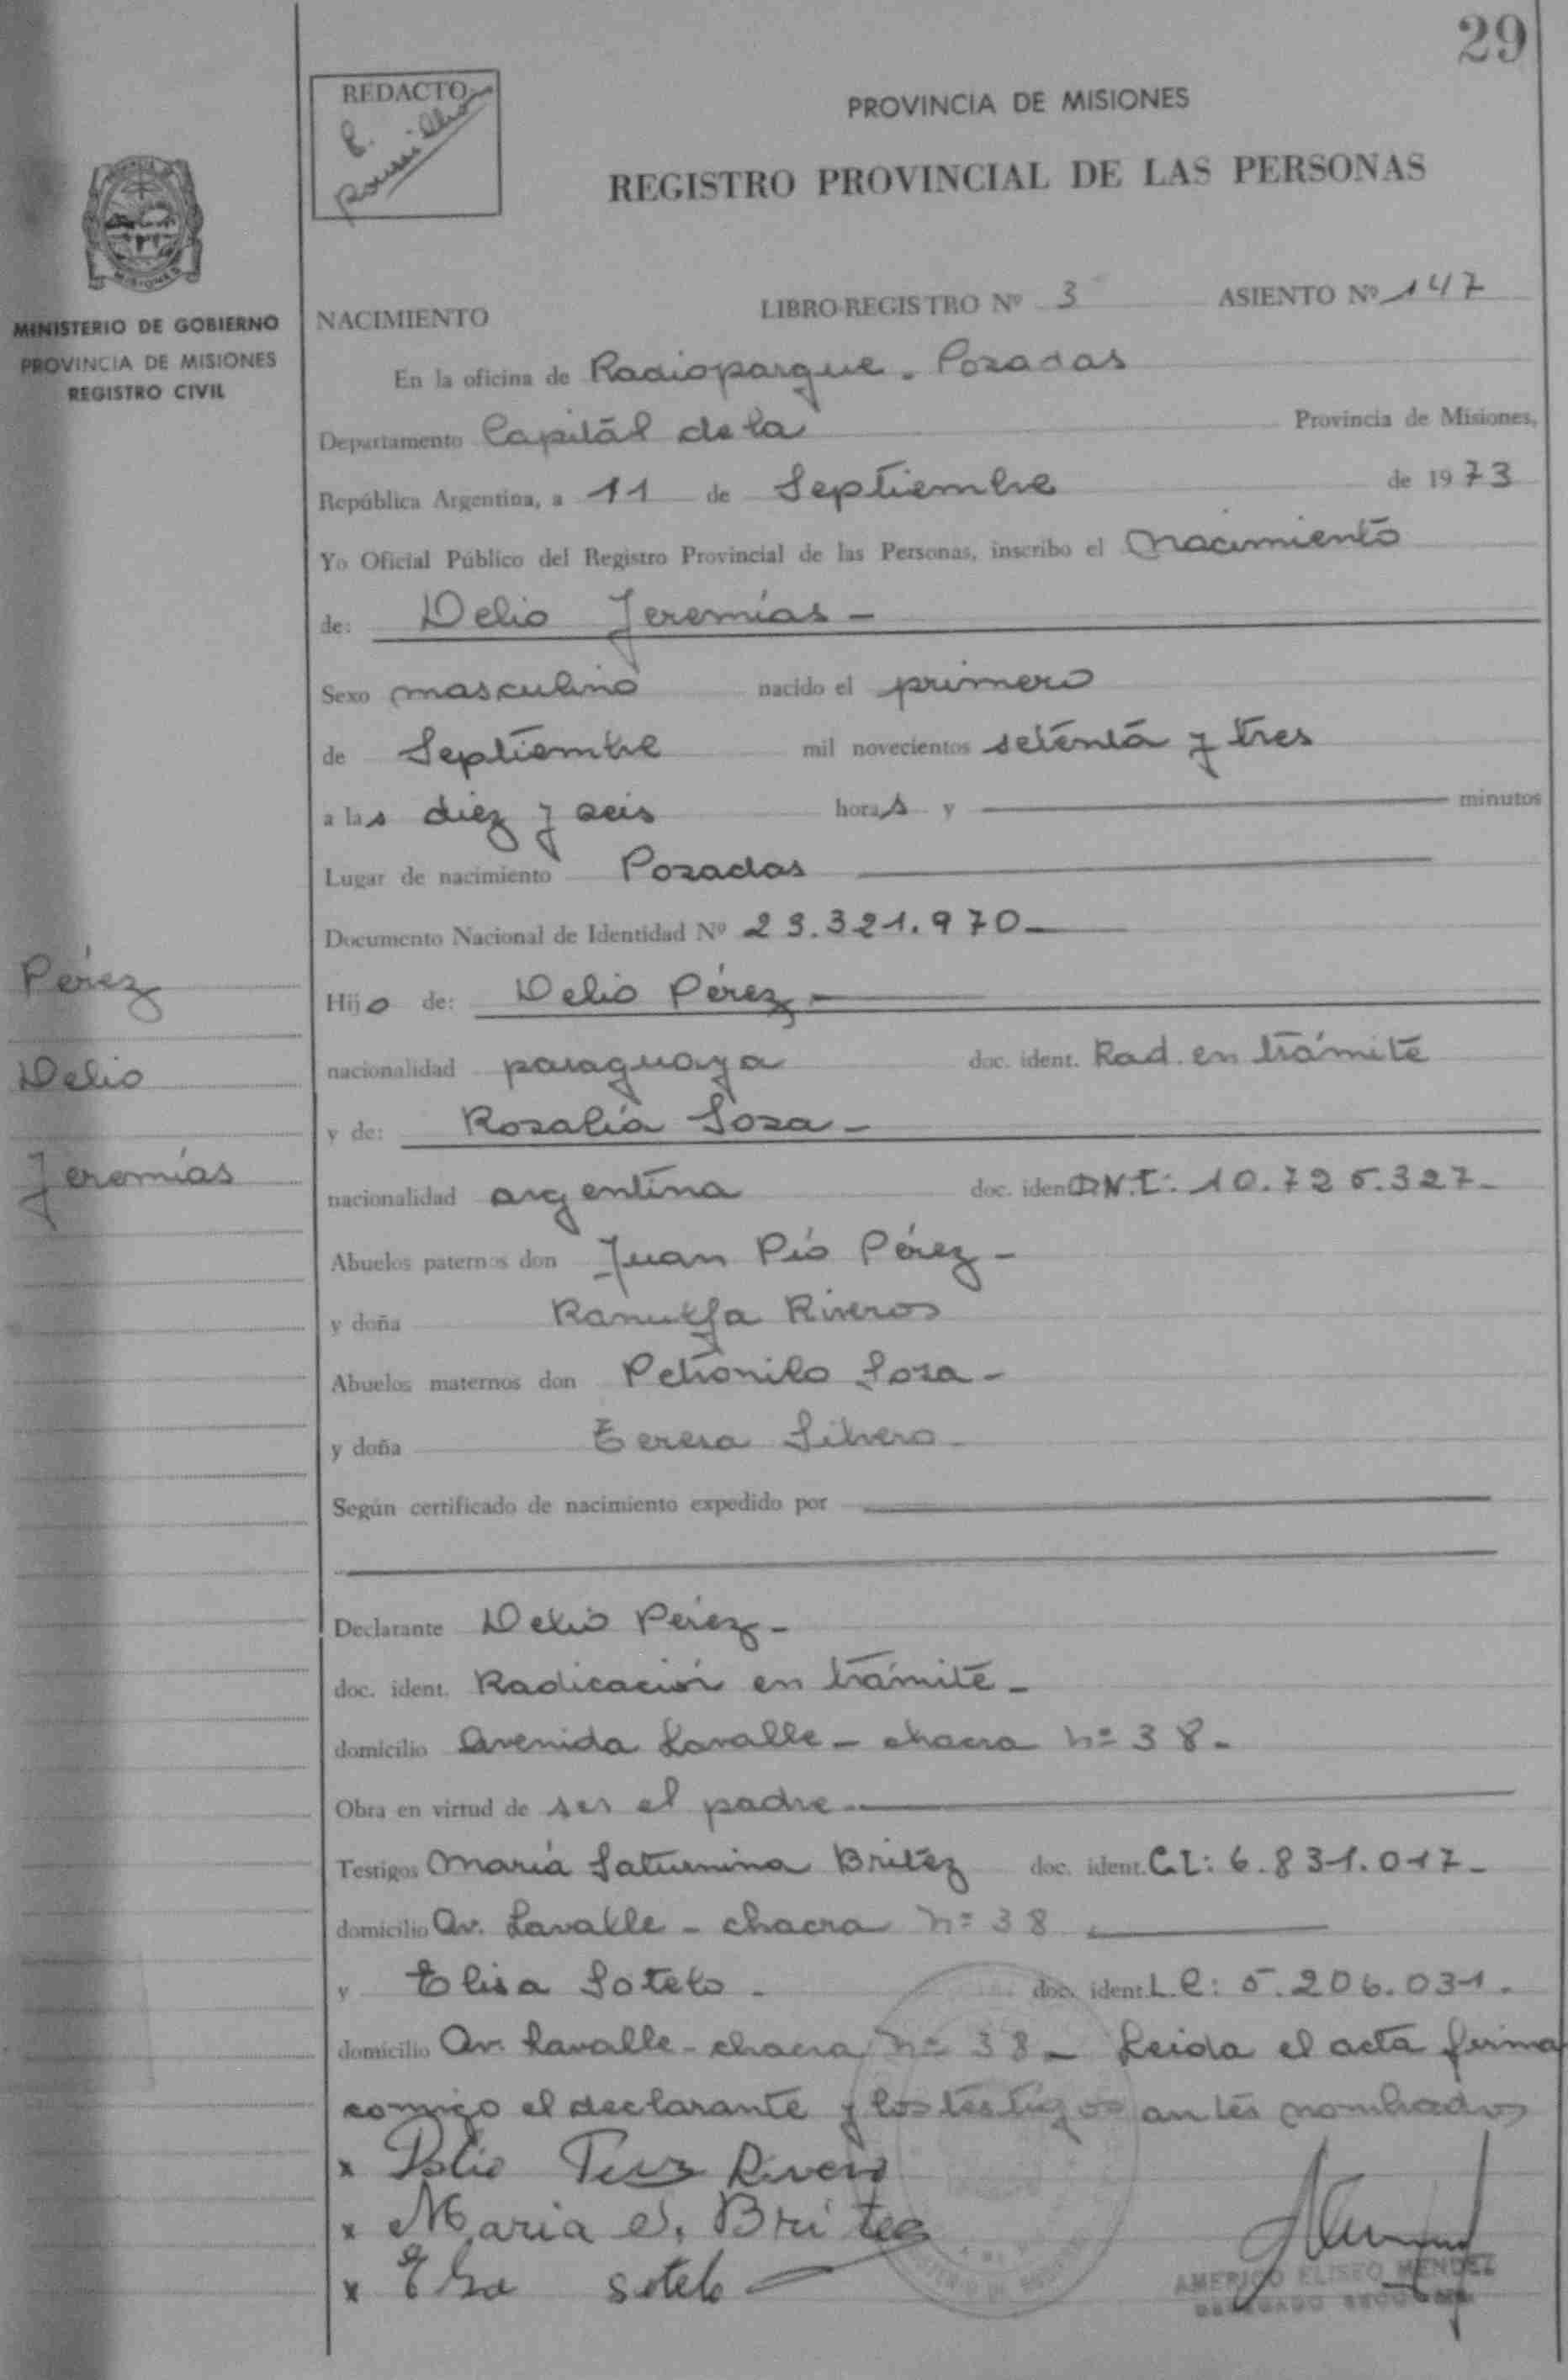 29
REDACTO
PROVINCIA DE MISIONES
REGISTRO PROVINCIAL DE LAS PERSONAS
MISIONES
MINISTERIO DE GOBIERNO
PROVINCIA DE MISIONES
REGISTRO CIVIL
NACIMIENTO LIBRO-REGISTRO Nº 3 ASIENTO Nº 147
En la oficina de Radioparque - Posadas
Departamento Capital de la Provincia de Misiones,
República Argentina, a 11 de Septiembre de 1973
Yo Oficial Público del Registro Provincial de las Personas, inscribo el Nacimiento
de: Delio Jeremías -
Sexo masculino nacido el primero
de Septiembre mil novecientos setenta y tres
a las diez y seis horas y minutos
Lugar de nacimiento Posadas
Documento Nacional de Identidad Nº 23.321.970 -
Pérez
Hijo de: Delio Pérez -
nacionalidad paraguaya doc. ident. Rad. en trámite
Delio
y de: Rosalía Sosa -
Jeremías
nacionalidad argentina doc. ident D.N.I: 10.725.327 -
Abuelos paternos don Juan Pío Pérez -
y doña Ranulfa Riveros
Abuelos maternos don Petronilo Sosa -
y doña Teresa Silvero -
Según certificado de nacimiento expedido por
Declarante Delio Pérez -
doc. ident. Radicación en trámite -
domicilio Avenida Lavalle - chacra nº 38 -
Obra en virtud de ser el padre -
Testigos María Saturnina Britez doc. ident. C.I: 6.831.017 -
domicilio Av. Lavalle - chacra nº 38
y Elisa Sotelo - doc. ident. L.C: 5.206.031 .
domicilio Av. Lavalle - chacra nº 38 - Leida el acta firma
comigo el declarante y los testigos antes nombrados
x Delio Perez Rivero
x Maria S. Britez
x Elsa sotelo
AMERICO ELISEO MENDEZ